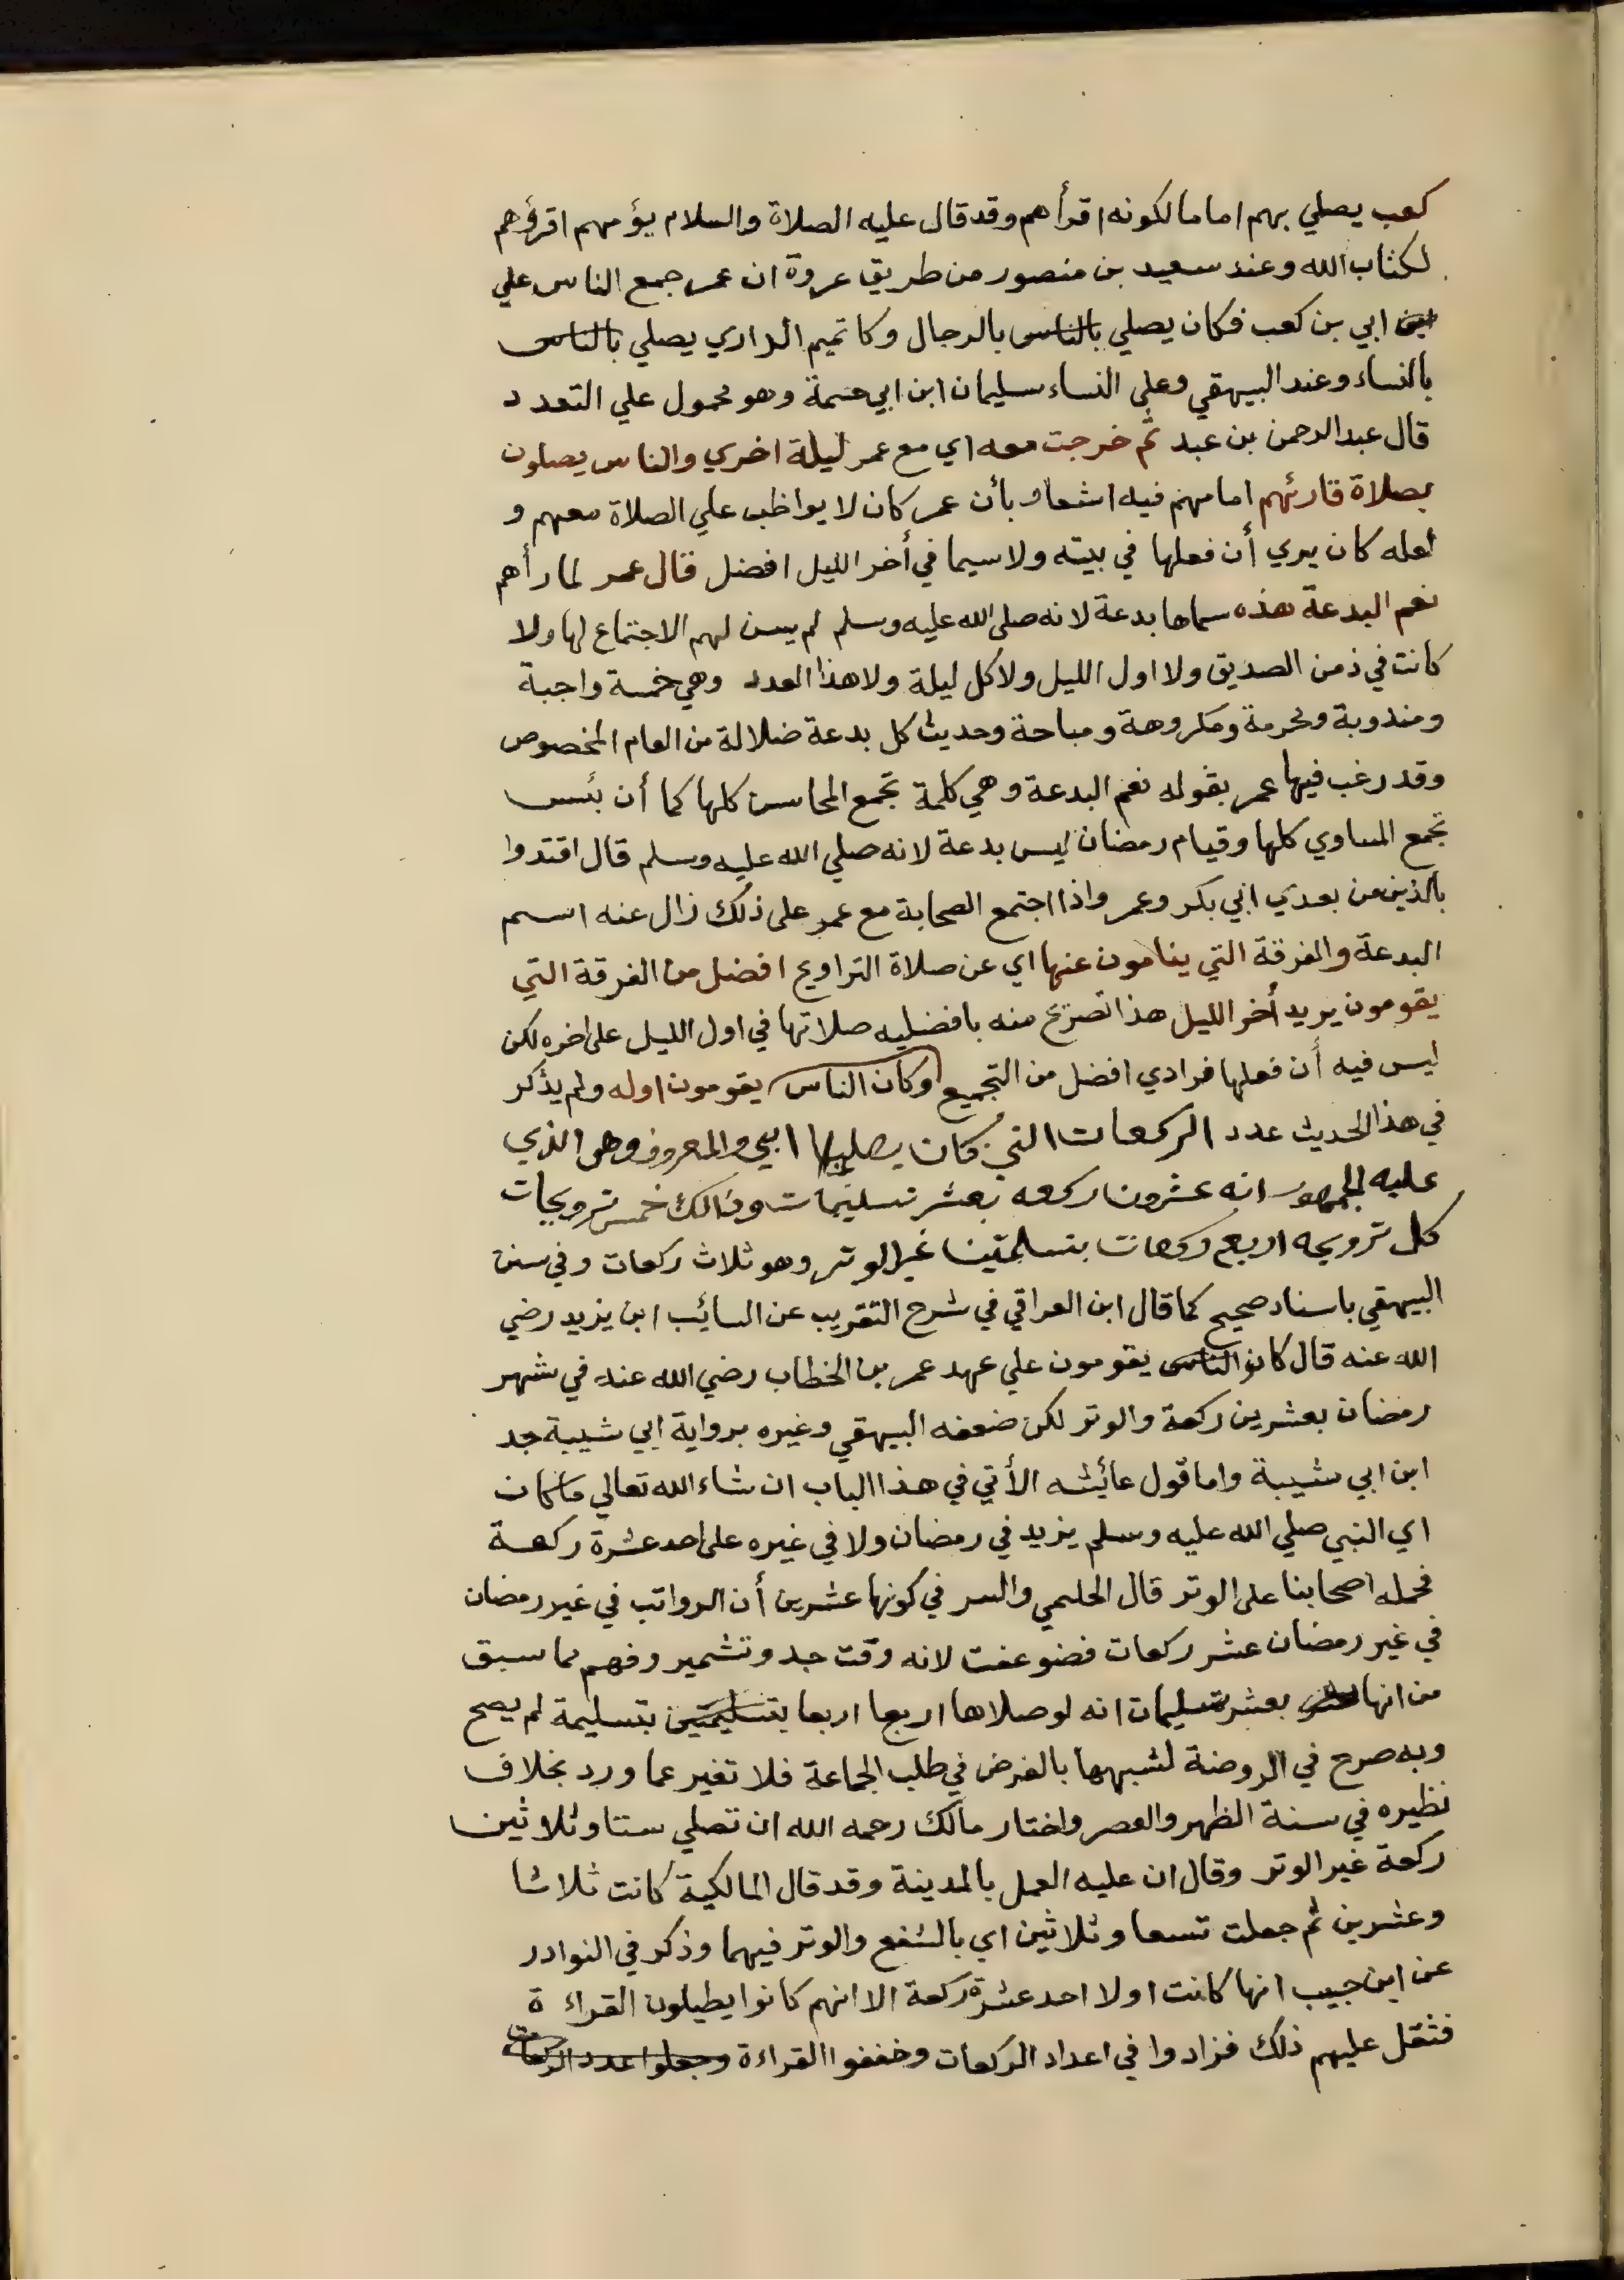 كعب يصلي بهم اماما لكونه اقرأهم وقد قال عليه الصلاة والسلام يؤمهم اقرؤهم
لكتاب الله وعند سعيد بن منصور من طريق عروة ان عمر جمع الناس علي
ابي بن كعب فكان يصلي بالناس بالرجال وكا تميم الداري يصلي بالناس
بالنساء وعند البيهقي وعلى النساء سليمان ابن ابي حثمة وهو محمول علي التعدد
قال عبد الرحمن بن عبد ثم خرجت معه اي مع عمر ليلة اخري والناس يصلون
بصلاة قارئهم امامهم فيه اشعار بأن عمر كان لا يواظب علي الصلاة معهم و
لعله كان يري أن فعلها في بيته ولا سيما في أخر الليل افضل قال عمر لما رأهم
نعم البدعة هذه سماها بدعة لانه صلى الله عليه وسلم لم يسن لهم الاجتماع لها ولا
كانت في زمن الصديق ولا اول الليل ولا كل ليلة ولا هذا العدد وهي خمسة واجبة
ومندوبة ومحرمة ومكروهة ومباحة وحديث كل بدعة ضلالة من العام المخصوص
وقد رغب فيها عمر بقوله نعم البدعة وهي كلمة تجمع المحاسن كلها كما أن بئس
تجمع المساوي كلها وقيام رمضان ليس بدعة لانه صلي الله عليه وسلم قال اقتدوا
بالذين من بعدي ابي بكر وعمر واذا اجتمع الصحابة مع عمر على ذلك زال عنه اسم
البدعة والفرقة التي ينامون عنها اي عن صلاة التراويح افضل من الفرقة التي
يقومون يريد أخر الليل هذا تصريح منه بافضليه صلاتها في اول الليل على اخره لكن
ليس فيه أن فعلها فرادي افضل من التجميع وكان الناس يقومون اوله ولم يذكر
في هذا الحديث عدد الركعات التي كان يصليها ابي والمعروف وهو الذي
عليه الجمهور انه عشرون ركعه بعشر تسليمات وذالك خمس ترويحات
كل ترويحه اربع ركعات بتسلمتين غير الوتر وهو ثلاث ركعات وفي سنن
البيهقي باسناد صحيح كما قال ابن العراقي في شرح التقريب عن السائب ابن يزيد رضي
الله عنه قال كانوا الناس يقومون علي عهد عمر بن الخطاب رضي الله عنه في شهر
رمضان بعشرين ركعة والوتر لكن ضعفه البيهقي وغيره برواية ابي شيبة جد
ابن ابي شيبة واما قول عائشه الأتي في هذا الباب ان شاء الله تعالي ما كان
اي النبي صلي الله عليه وسلم يزيد في رمضان ولا في غيره على احد عشرة ركعة
فحمله اصحابنا على الوتر قال الحليمي والسر في كونها عشرين أن الرواتب في غير رمضان
في غير رمضان عشر ركعات فضوعفت لانه وقت جد وتشمير وفهم مما سبق
من انها بعشر تسليمات انه لو صلاها اربعا اربعا بتسليمتين بتسليمة لم يصح
وبه صرح في الروضة لشبهها بالفرض في طلب الجماعة فلا تغير عما ورد بخلاف
نظيره في سنة الظهر والعصر واختار مالك رحمه الله ان تصلي ستا وثلاثين
ركعة غير الوتر وقال ان عليه العمل بالمدينة وقد قال المالكية كانت ثلاثا
وعشرين ثم جعلت تسعا وثلاثين اي بالشفع والوتر فيهما وذكر في النوادر
عن ابن حبيب انها كانت اولا احد عشرة ركعة الا انهم كانوا يطيلون القراءة
فثقل عليهم ذلك فزادوا في اعداد الركعات وخففوا القراءة وجعلوا عدد الركعات